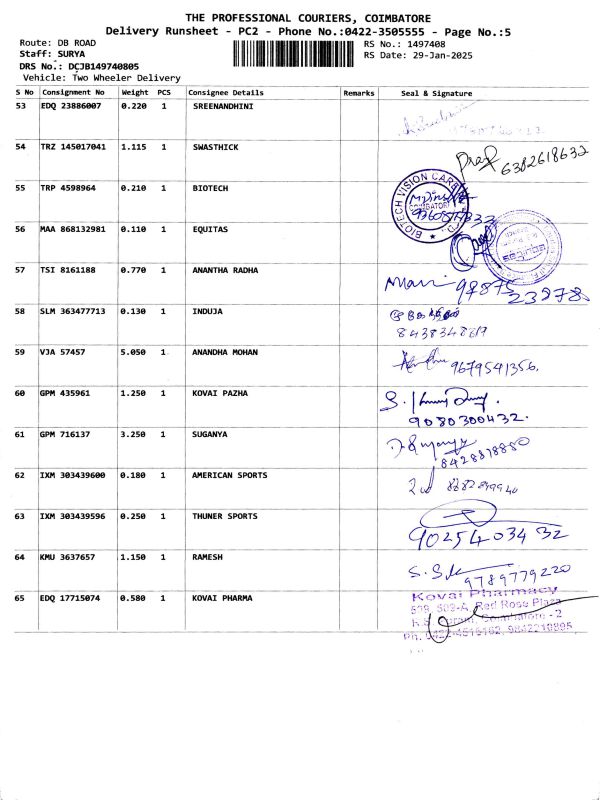 THE PROFESSIONAL COURIERS, COIMBATORE
Delivery Runsheet - PC2 - Phone No.:0422-3505555 - Page No.:5
Route: DB ROAD
RS No.: 1497408
Staff: SURYA
RS Date: 29-Jan-2025
DRS No.: DCJB149740805
Vehicle: Two Wheeler Delivery
S No Consignment No Weight PCS Consignee Details Remarks Seal & Signature
53 EDQ 23886007 0.220 1 SREENANDHINI
54 TRZ 145017041 1.115 1 SWASTHICK
6382618632
55 TRP 4598964 0.210 1 BIOTECH
BIOTECH VISION CARE
COIMBATORE
56 MAA 868132981 0.110 1 EQUITAS
57 TSI 8161188 0.770 1 ANANTHA RADHA
Mani 97875
23978
58 SLM 363477713 0.130 1 INDUJA
59 VJA 57457 5.050 1 ANANDHA MOHAN
9679541356.
60 GPM 435961 1.250 1 KOVAI PAZHA
9080300432.
61 GPM 716137 3.250 1 SUGANYA
8428818880
62 IXM 303439600 0.180 1 AMERICAN SPORTS
63 IXM 303439596 0.250 1 THUNER SPORTS
90254 034 32
64 KMU 3637657 1.150 1 RAMESH
9789779220
65 EDQ 17715074 0.580 1 KOVAI PHARMA
Kovai Pharmacy
509-A, Red Rose Plaza
Coimbatore - 2
Ph. 0422-4516162, 9842210895